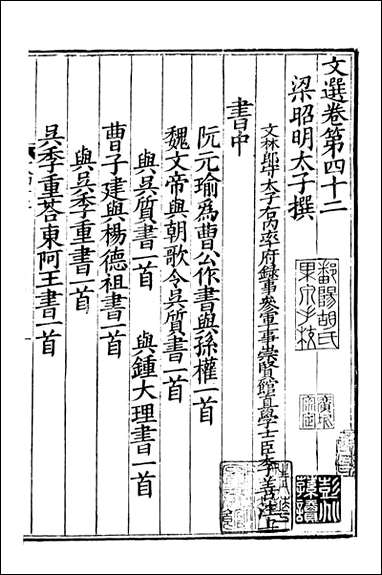 文選卷第四十二
梁昭明太子撰
文林郎守太子右內率府錄事參軍事崇賢館直學士臣李善注上
書中
阮元瑜爲曹公作書與孫權一首
魏文帝與朝歌令吳質書一首
與吳質書一首 與鍾大理書一首
曹子建與楊德祖書一首
與吳季重書一首
吳季重荅東阿王書一首
鄱陽胡氏
果泉手校